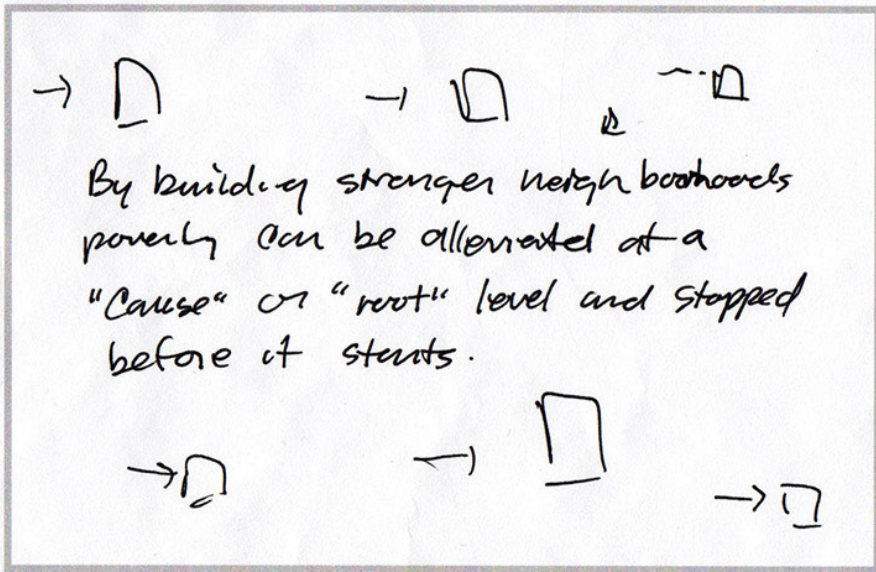 By building stronger neighboorhoods
poverty can be alleviated at a
"Cause" or "root" level and stopped
before it starts.